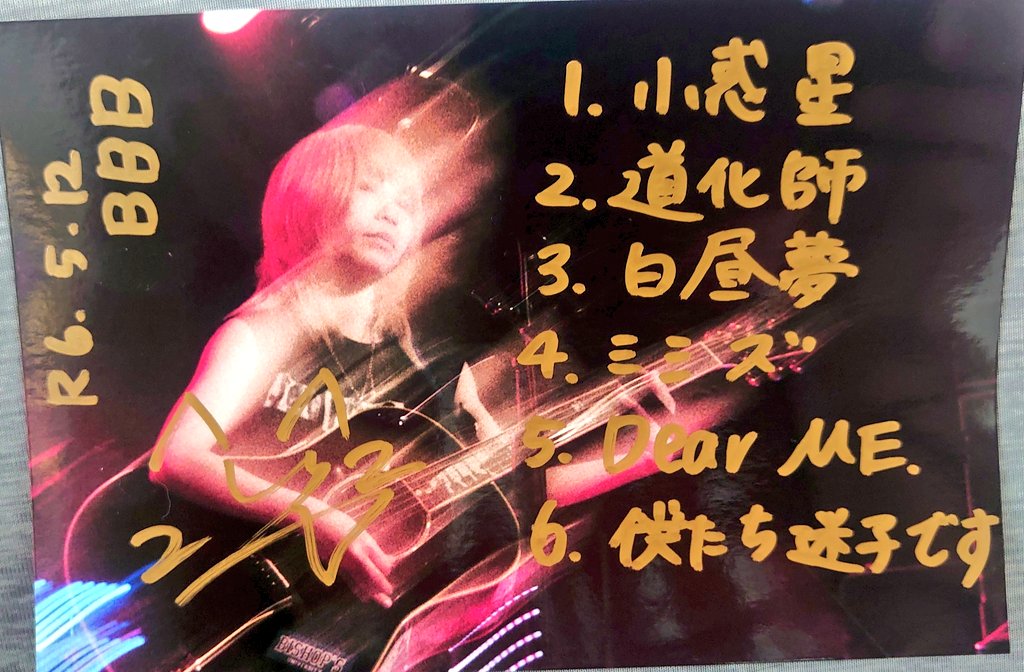 BBB
BBB
R6. 5. 12
1. 小惑星
2. 道化師
3. 白昼夢
4. ミミズ
5. Dear ME.
6. 僕たち迷子です
BISHOP'S